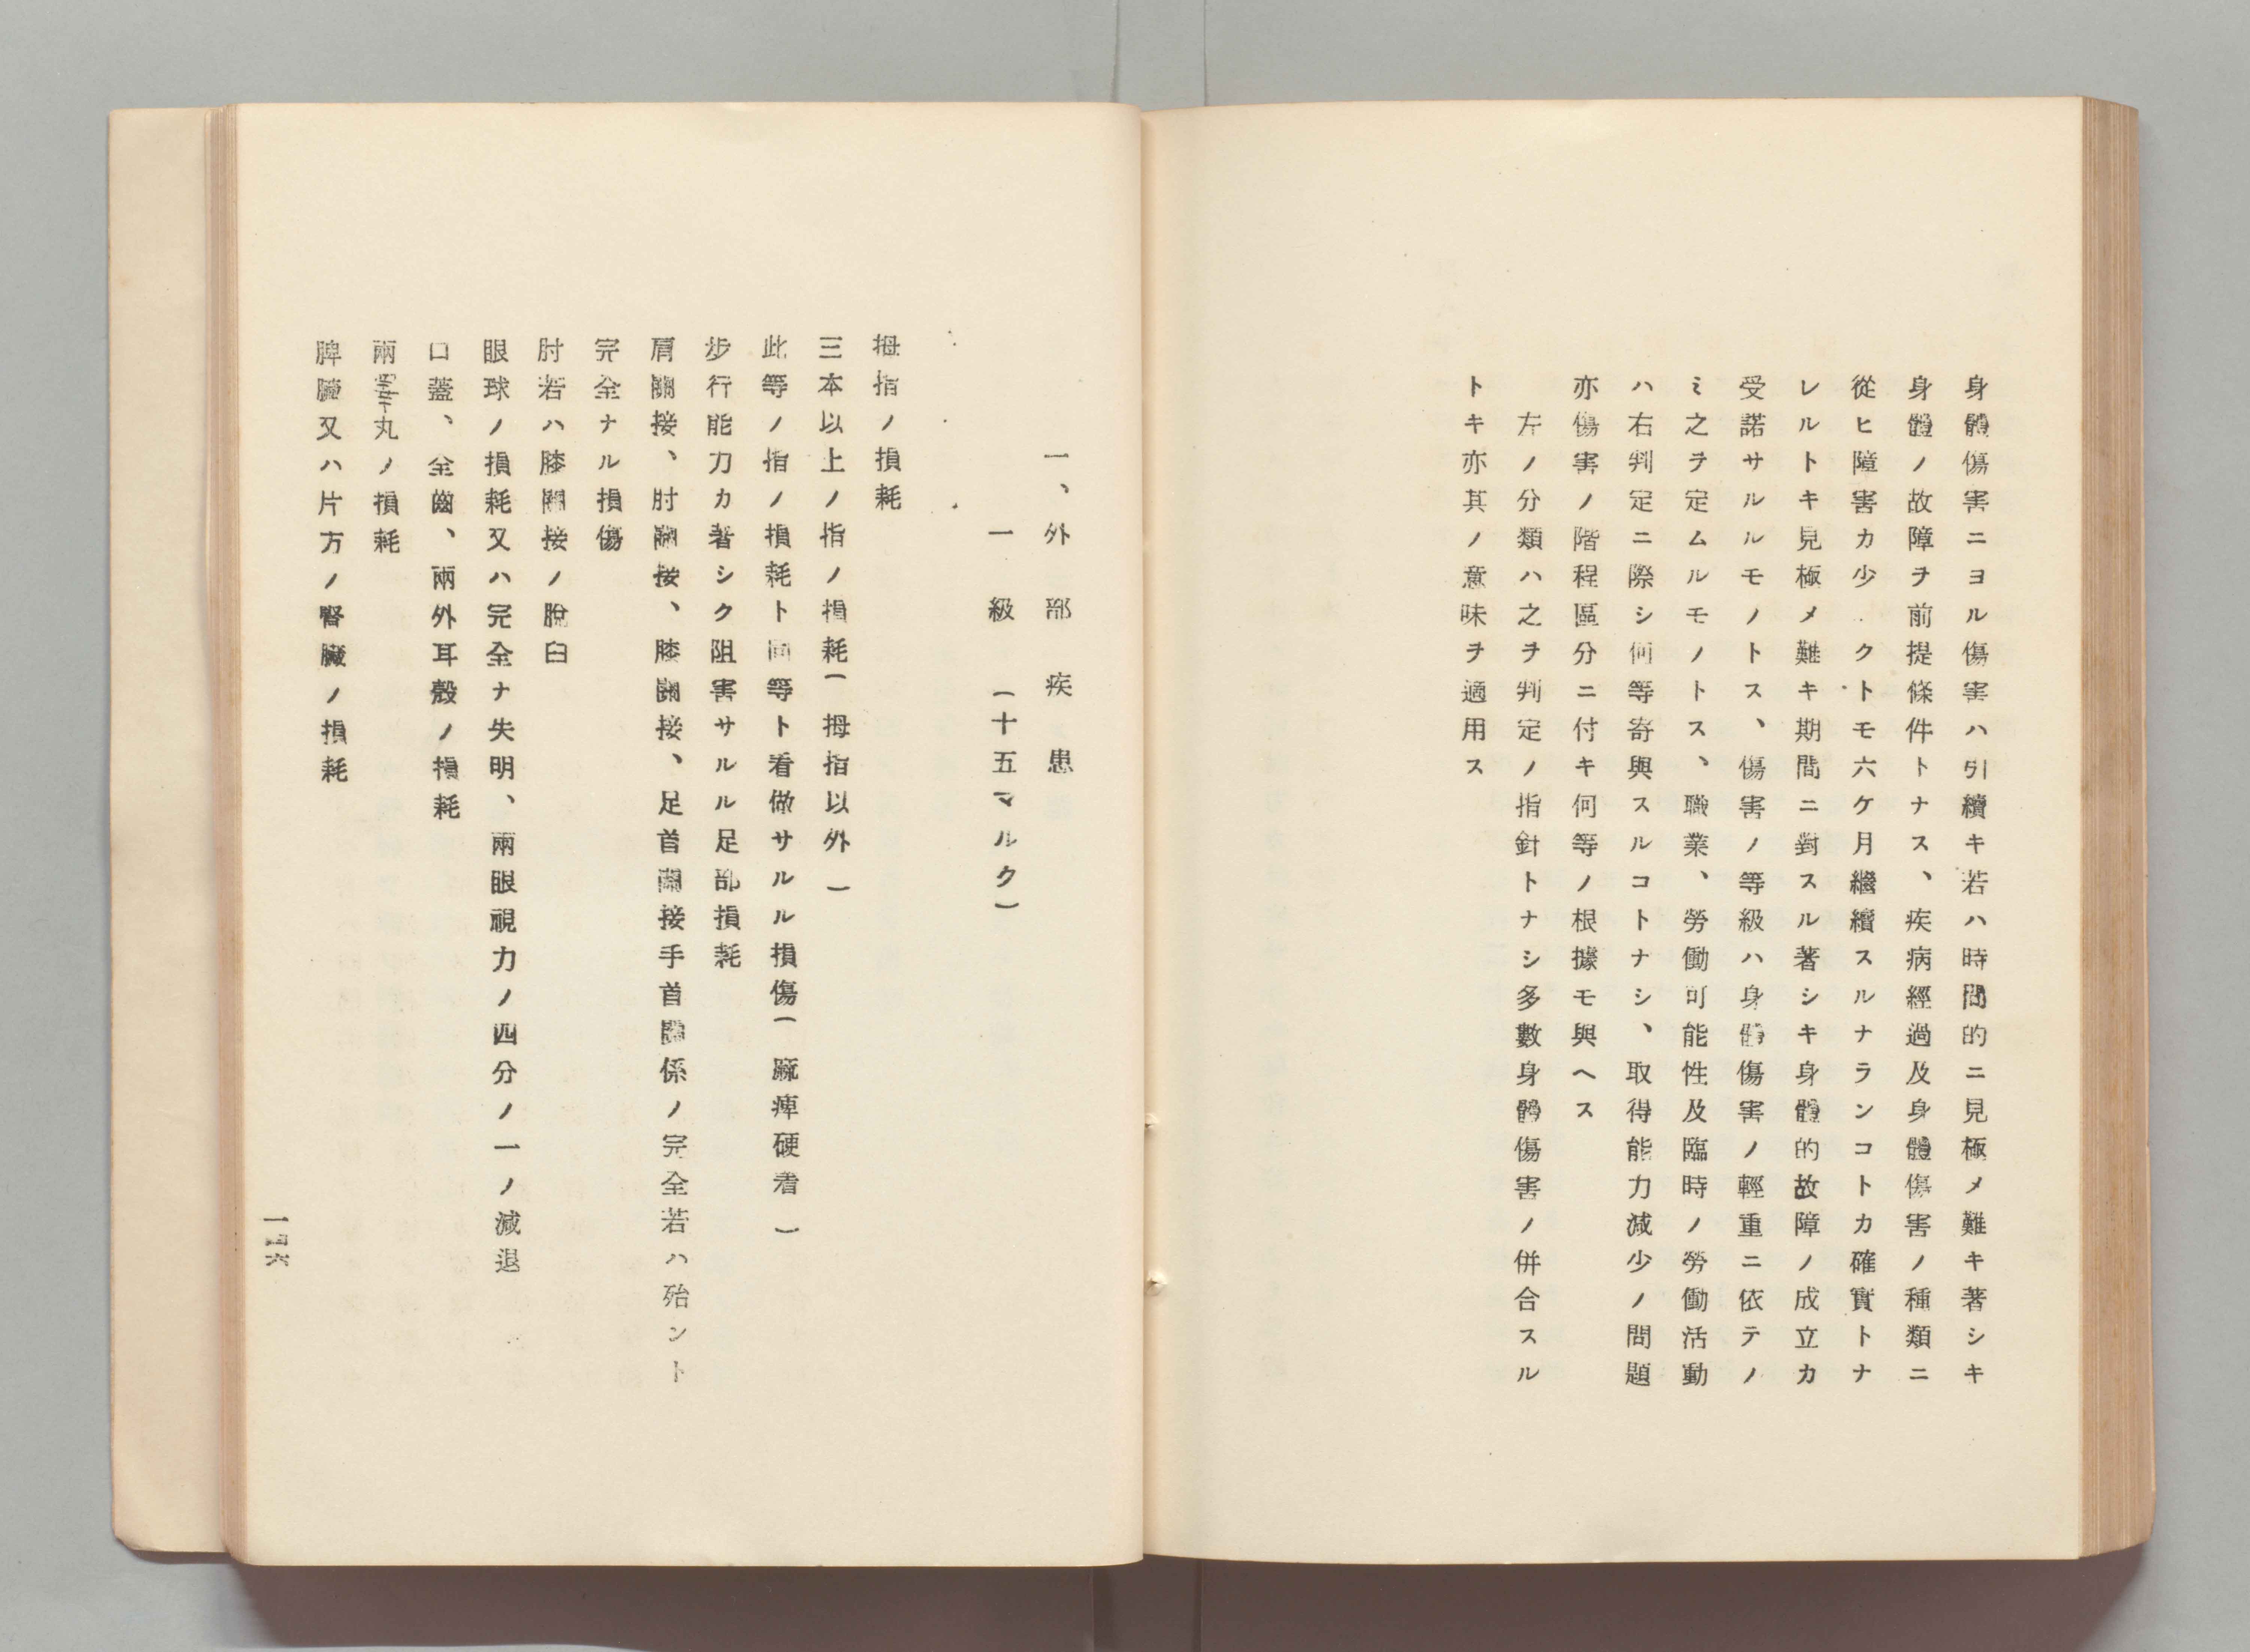 身體傷害ニヨル傷害ハ引續キ若ハ時間的ニ見極メ難キ著シキ
身體ノ故障ヲ前提條件トナス、疾病經過及身體傷害ノ種類ニ
從ヒ障害カ少クトモ六ケ月繼續スルナランコトカ確實トナ
レルトキ見極メ難キ期間ニ對スル著シキ身體的故障ノ成立カ
受諾サルルモノトス、傷害ノ等級ハ身體傷害ノ輕重ニ依テノ
ミ之ヲ定ムルモノトス、職業、勞働可能性及臨時ノ勞働活動
ハ右判定ニ際シ何等寄與スルコトナシ、取得能力減少ノ問題
亦傷害ノ階程區分ニ付キ何等ノ根據モ與ヘス
左ノ分類ハ之ヲ判定ノ指針トナシ多數身體傷害ノ併合スル
トキ亦其ノ意味ヲ適用ス
一、外部疾患
一級(十五マルク)
拇指ノ損耗
三本以上ノ指ノ損耗(拇指以外)
此等ノ指ノ損耗ト同等ト看做サルル損傷(麻痺硬着)
步行能力カ著シク阻害サルル足部損耗
肩關接、肘關接、膝關接、足首關接手首關係ノ完全若ハ殆ント
完全ナル損傷
肘若ハ膝關接ノ脫臼
眼球ノ損耗又ハ完全ナ失明、兩眼視力ノ四分ノ一ノ減退
口蓋、全齒、兩外耳殼ノ損耗
兩睾丸ノ損耗
脾臟又ハ片方ノ腎臟ノ損耗
一四六